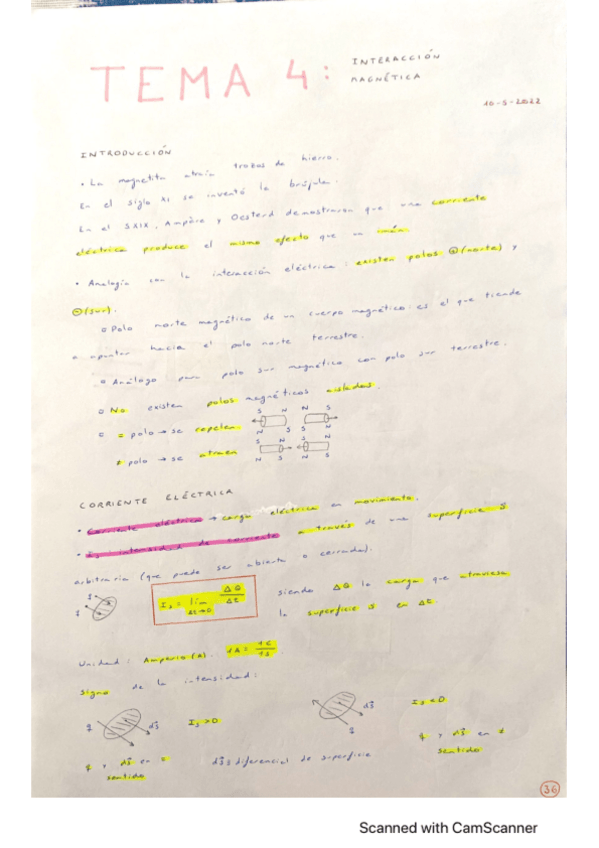 TEMA 4: INTERACCIÓN
MAGNÉTICA
10-5-2022
INTRODUCCIÓN
• La magnetita atraía trozos de hierro.
En el siglo XI se inventó la brújula.
En el SXIX, Ampère y Oesterd demostraron que una corriente
eléctrica produce el mismo efecto que un imán.
• Analogía con la interacción eléctrica: existen polos ⊕(norte) y
⊖(sur).
o Polo norte magnético de un cuerpo magnético: es el que tiende
a apuntar hacia el polo norte terrestre.
o Análogo para polo sur magnético con polo sur terrestre.
o No existen polos magnéticos aislados.
o = polo → se repelen
S N N S
N S S N
≠ polo → se atraen
S N S N
N S N S
CORRIENTE ELÉCTRICA
• Corriente eléctrica → carga eléctrica en movimiento.
• Is intensidad de corriente a través de una superficie S
arbitraria (que puede ser abierta o cerrada).
Is = lim Δt→0 ΔQ/Δt siendo ΔQ la carga que atraviesa
la superficie S en Δt.
Unidad: Amperio (A). 1A = 1C/1s
Signo de la intensidad:
q dS Is>0 dS q Is<0
q y dS en = sentido
dS ≡ diferencial de superficie
q y dS en ≠ sentido
36
Scanned with CamScanner